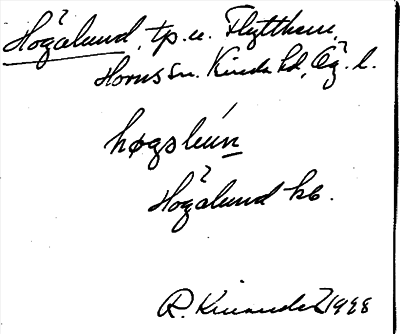 Högalund, tp. u. Flytthem,
Horns sn. Kinda hd, Ög. l.
høgslún
Högalund kb.
R. 1928